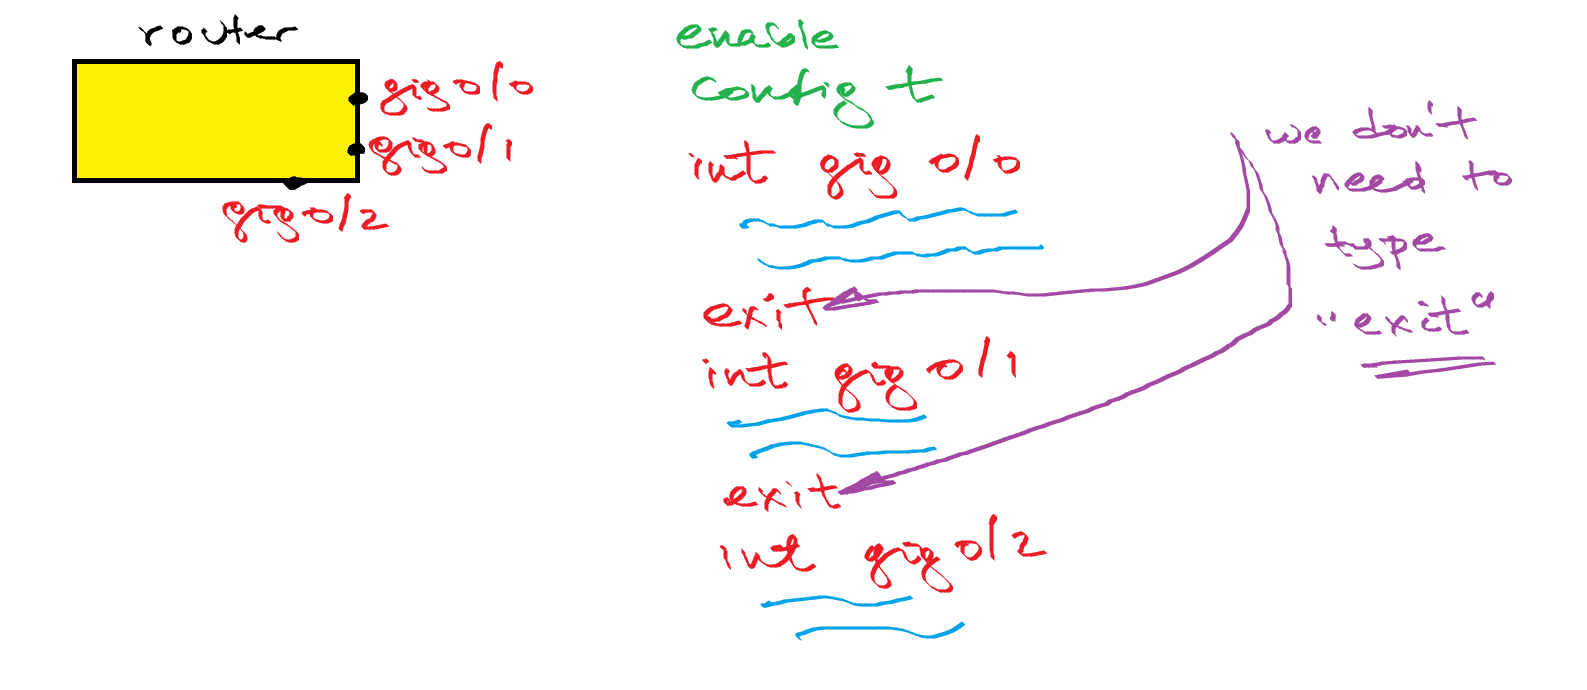 router
gig 0/0
gig 0/1
gig 0/2
enable
config t
int gig 0/0
exit
int gig 0/1
exit
int gig 0/2
we don't
need to
type
"exit"